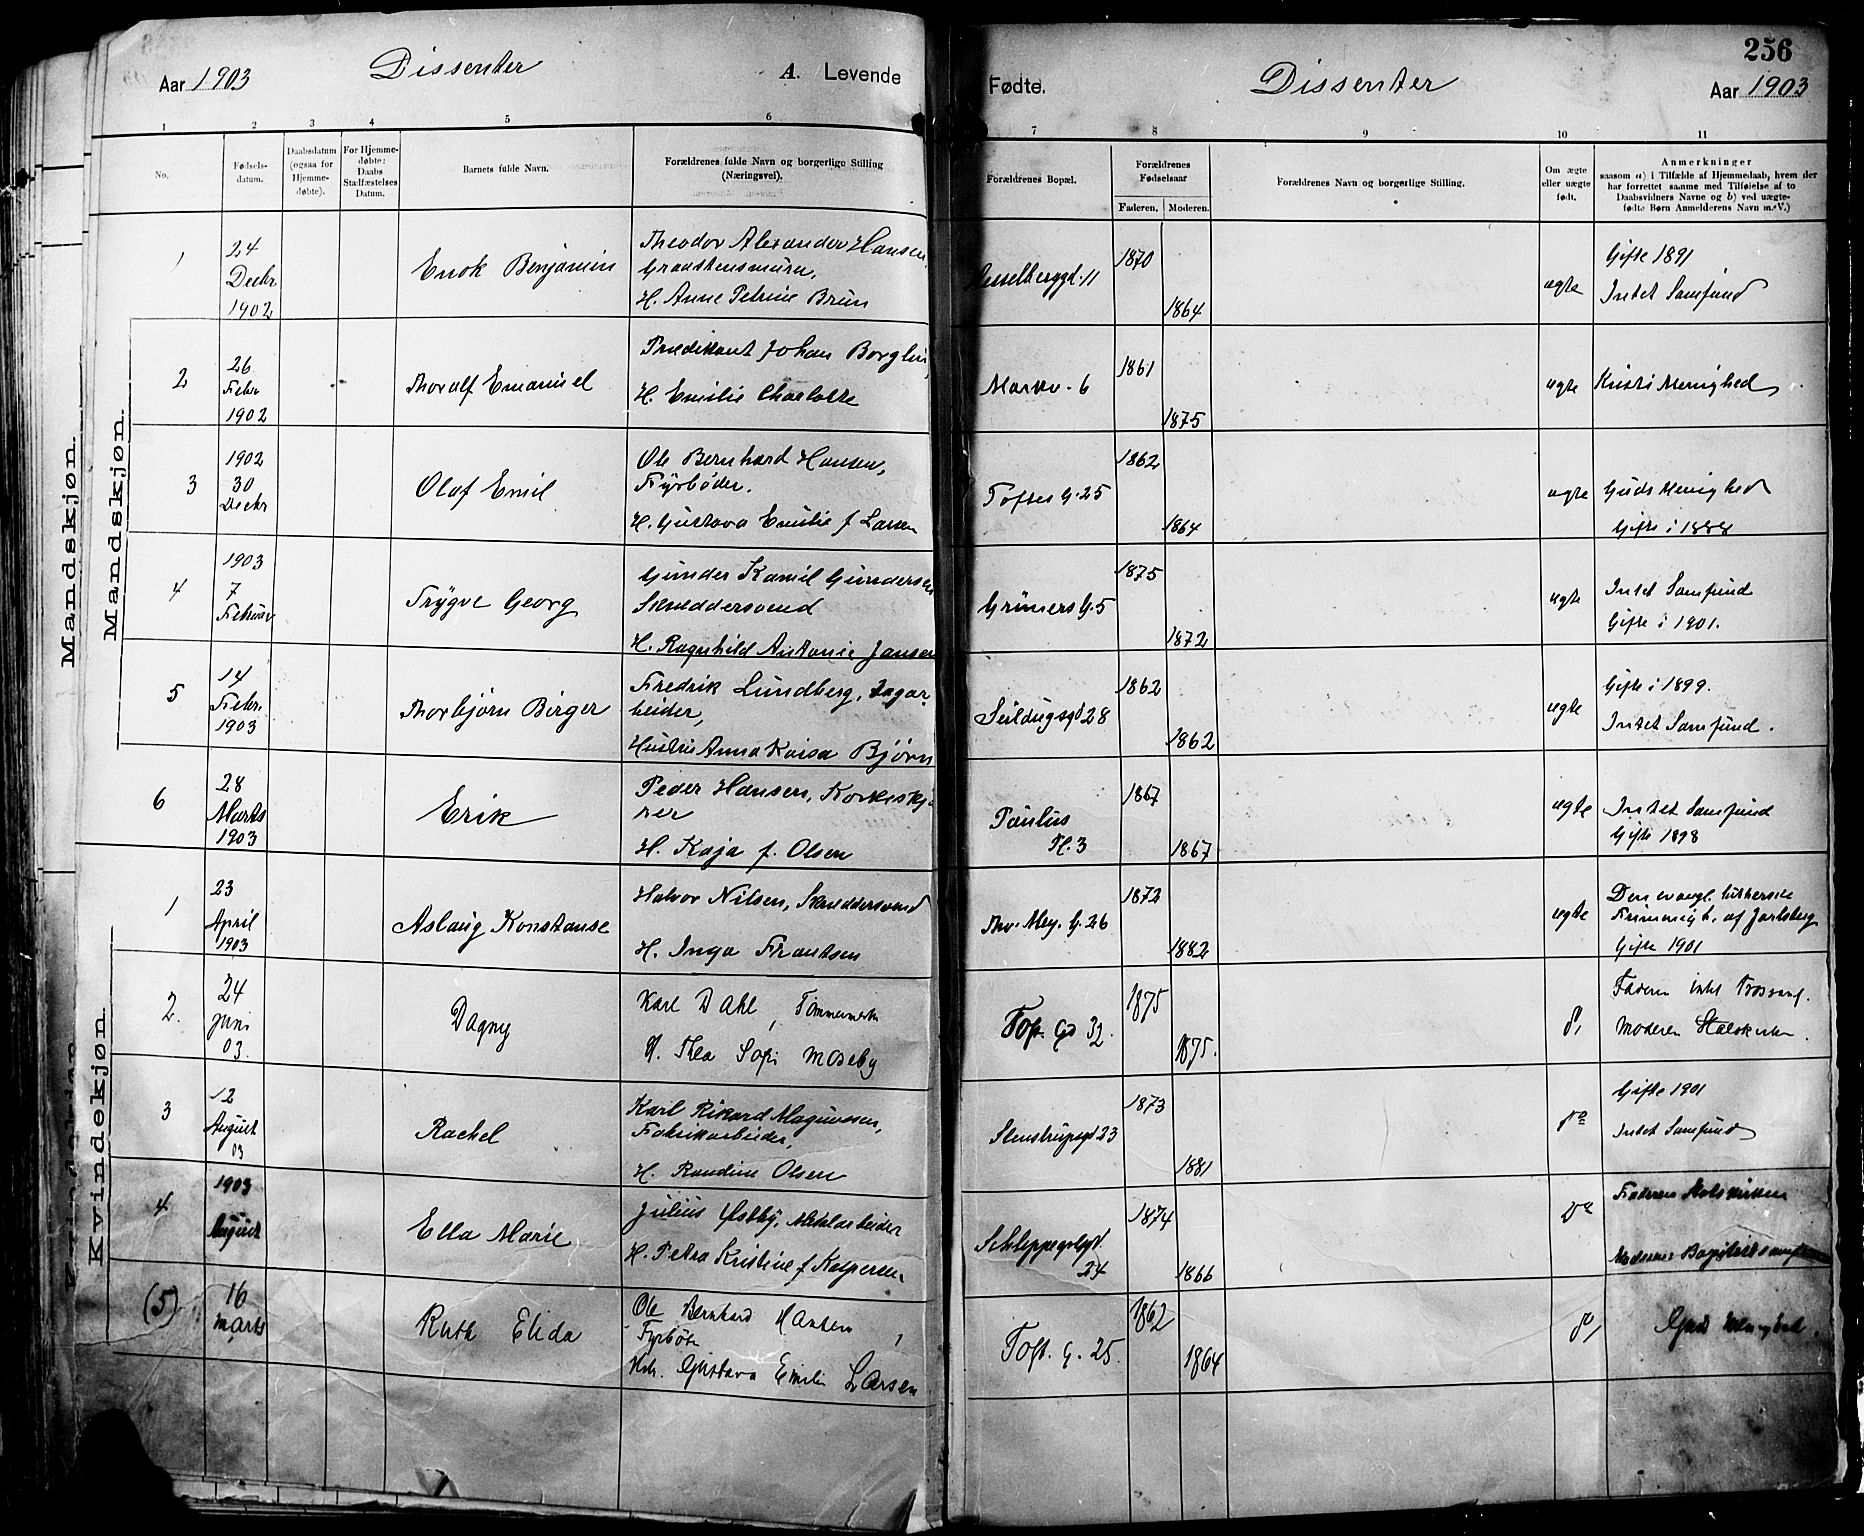 256
Aar 1903 Dissenter A. Levende
Fødte. Dissenter Aar 1903
1 2 3 4 5 6
7 8 9 10 11
No.
Fødsels-
datum.
Daabsdatum
(ogsaa for
Hjemme-
døbte).
For Hjemme-
døbte:
Daabs
Stadfæstelses
Datum.
Barnets fulde Navn.
Forældrenes fulde Navn og borgerlige Stilling
(Næringsvei).
Forældrenes Bopæl.
Forældrenes
Fødselsaar
Faderen. Moderen.
Forældrenes Navn og borgerlige Stilling.
Om ægte
eller uægte
født.
Anmerkninger
saasom a) i Tilfælde af Hjemmedaab, hvem der
har forrettet samme med Tilføielse af to
Daabsvidners Navne og b) ved uægte-
fødte Børn Anmelderens Navn m. V.)
Mandskjøn.
Mandskjøn.
1
24
Decbr
1902
Enok Benjamin
Theodor Alexander Hansen,
Graastensmurer,
H. Anne Petrine Brun
Hesselberggd. 11
1870
1864
ægte
Gifte 1891
Intet Samfund
2
26
Febr
1902
Thoralf Emanuel
Prædikant Johan Borglin,
H. Emilie Charlotte
Markv. 6
1861
1875
ægte
Kristi Menighed
3
1902
30
Decbr
Olaf Emil
Ole Bernhard Hansen,
Fyrbøder.
H. Gustava Emilie f Larsen
Toftes G. 25
1862
1864
ægte
Guds Menighed
Gifte i 1888
4
1903
7
Februar
Trygve Georg
Gunder Kamil Gundersen
Skræddersvend
H. Ragnhild Antonie Jansen
Grüners G. 5
1875
1872
ægte
Intet Samfund
Gifte i 1901.
5
14
Febr.
1903
Thorbjørn Birger
Fredrik Lundberg, Dagar-
beider,
Hustru Anna Kaisa Bjørn
Seildugsgd 28
1862
1862
ægte
Gifte i 1899.
Intet Samfund.
6
28
Marts
1903
Erik
Peder Hansen, Korkeskjæ
rer
H. Kaja f. Olsen
Paulus
Pl. 3
1867
1867
ægte
Intet Samfund
Gifte 1898
Kvindekjøn.
1
23
April
1903
Aslaug Konstanse
Halvor Nilsen, Skræddersvend
H. Inga Frantsen
Thv. Mey. G. 26
1872
1882
ægte
Den evangl. lutherske
Frimenigh. af Jarlsberg
Gifte 1901
2.
24
juni
03.
Dagny
Karl Dahl, Tømmerm
H. Thea Sofi Moseby
Toft. Gd 32.
1875
1875.
do,
Faderen intet Trossamf.
Moderen Statskirken.
3
12
August
03
Rachel
Karl Rikard Magnussen,
Fabrikarbeider,
H. Randine Olsen
Stenstrupsgd 23
1873
1881
do
Gifte 1901
Intet Samfund
4
1903
August
Ella Marie
Julius Østby, Metalarbeider
H. Petra Kristine f Kaspersen.
Schleppegrelsgd.
24
1874
1866
do
Faderen Statskirken
Moderen: Baptistsamf
(5)
16
marts
Ruth Elida
Ole Bernhard Hansen,
Fyrbøte
Hstr. Gustava Emilie Larsen
Toft. G. 25.
1862
1864
do,
Guds Menighed.